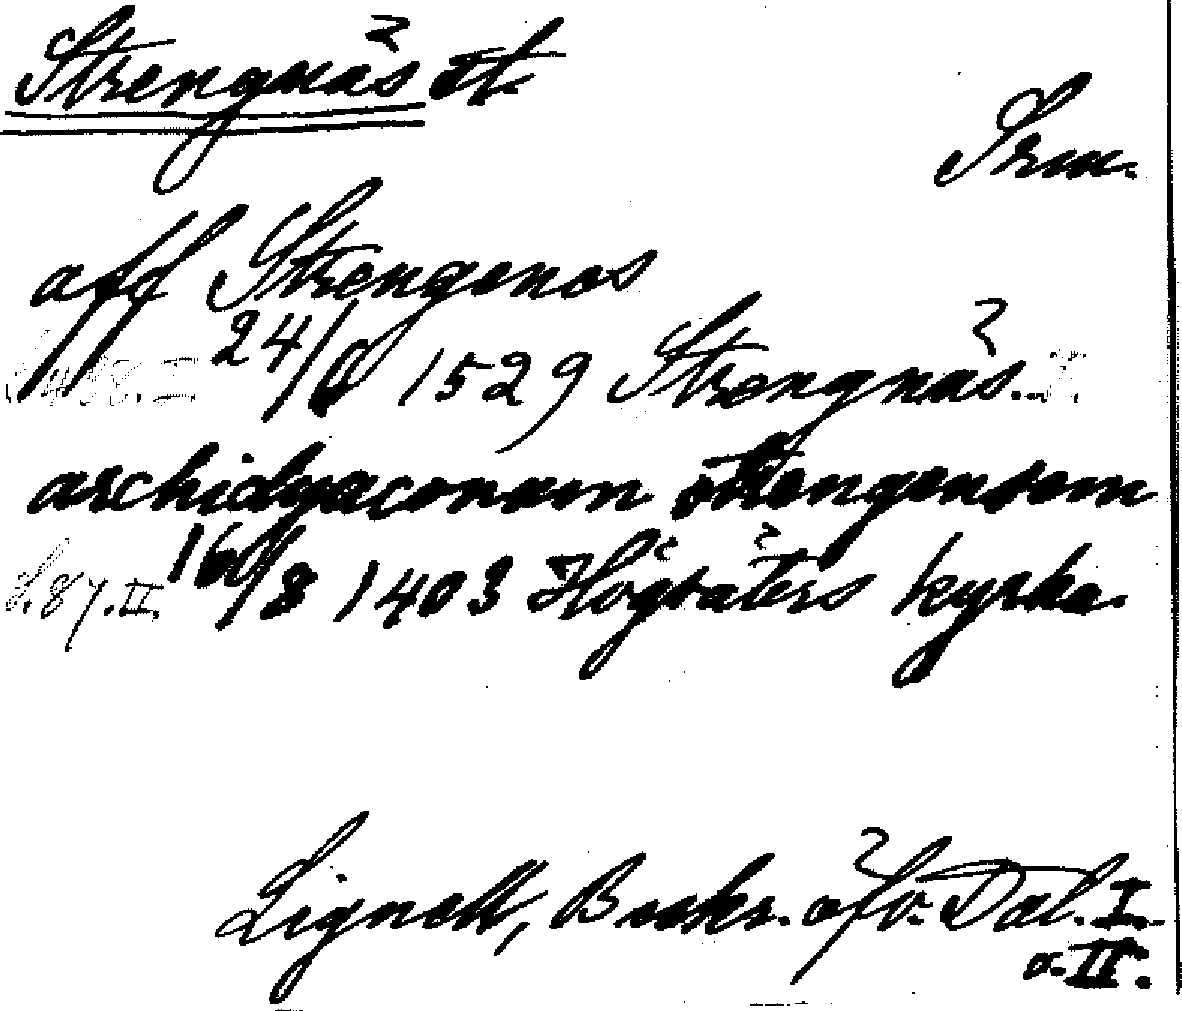 Strengnäs st.
Srm.
aff Strengenos
24/6 1529 Strengnäs.
archidyaconum strengensem
S. 87. II. 16/8 1403 Högsäters kyrka.
Lignell, Beskr. öfv. Dal. I.
o. II.